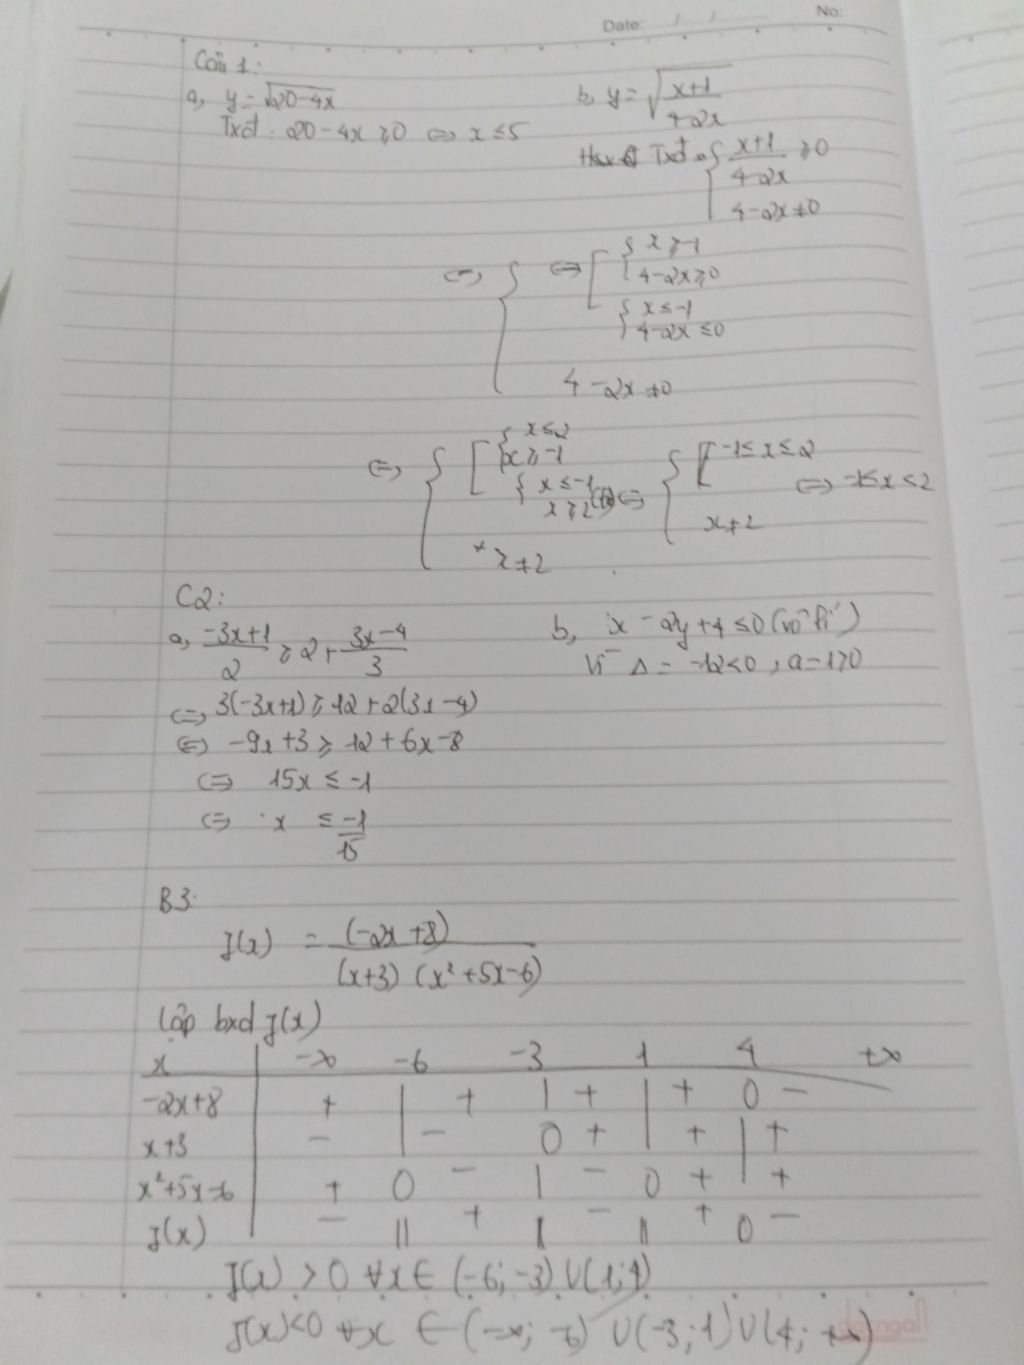 Date: / / No:
Câu 1:
a, y = √(20-4x)
Txđ: 20-4x ≥ 0 ⇔ x ≤ 5
b, y = √((x+1)/(4-2x))
Txđ { (x+1)/(4-2x) ≥ 0
4-2x ≠ 0
⇔ { ⇔ [ { x ≥ -1
4-2x ≥ 0
{ x ≤ -1
4-2x ≤ 0
4-2x ≠ 0
⇔ { [ { x ≤ 2
x ≥ -1
{ x ≤ -1
x ≥ 2
x ≠ 2
⇔ { [ -1 ≤ x ≤ 2
x ≠ 2
⇔ -1 ≤ x < 2
C2:
a, (-3x+1)/2 ≥ 2 + (3x-4)/3
⇔ 3(-3x+1) ≥ 12 + 2(3x-4)
⇔ -9x+3 ≥ 12+6x-8
⇔ 15x ≤ -1
⇔ x ≤ -1/15
b, x - 2y + 4 ≤ 0 (vô lí)
Vì Δ = -12 < 0, a = 1 > 0
B3:
f(x) = (-2x+8)/((x+3)(x²+5x-6))
Lập bxd f(x)
x -∞ -6 -3 1 4 +∞
-2x+8 + | + | + | + 0 -
x+3 - | - 0 + | + | +
x²+5x-6 + 0 - | - 0 + | +
f(x) - || + || - || + 0 -
f(x) > 0 ∀x ∈ (-6; -3) ∪ (1; 4)
f(x) < 0 ∀x ∈ (-∞; -6) ∪ (-3; 1) ∪ (4; +∞)